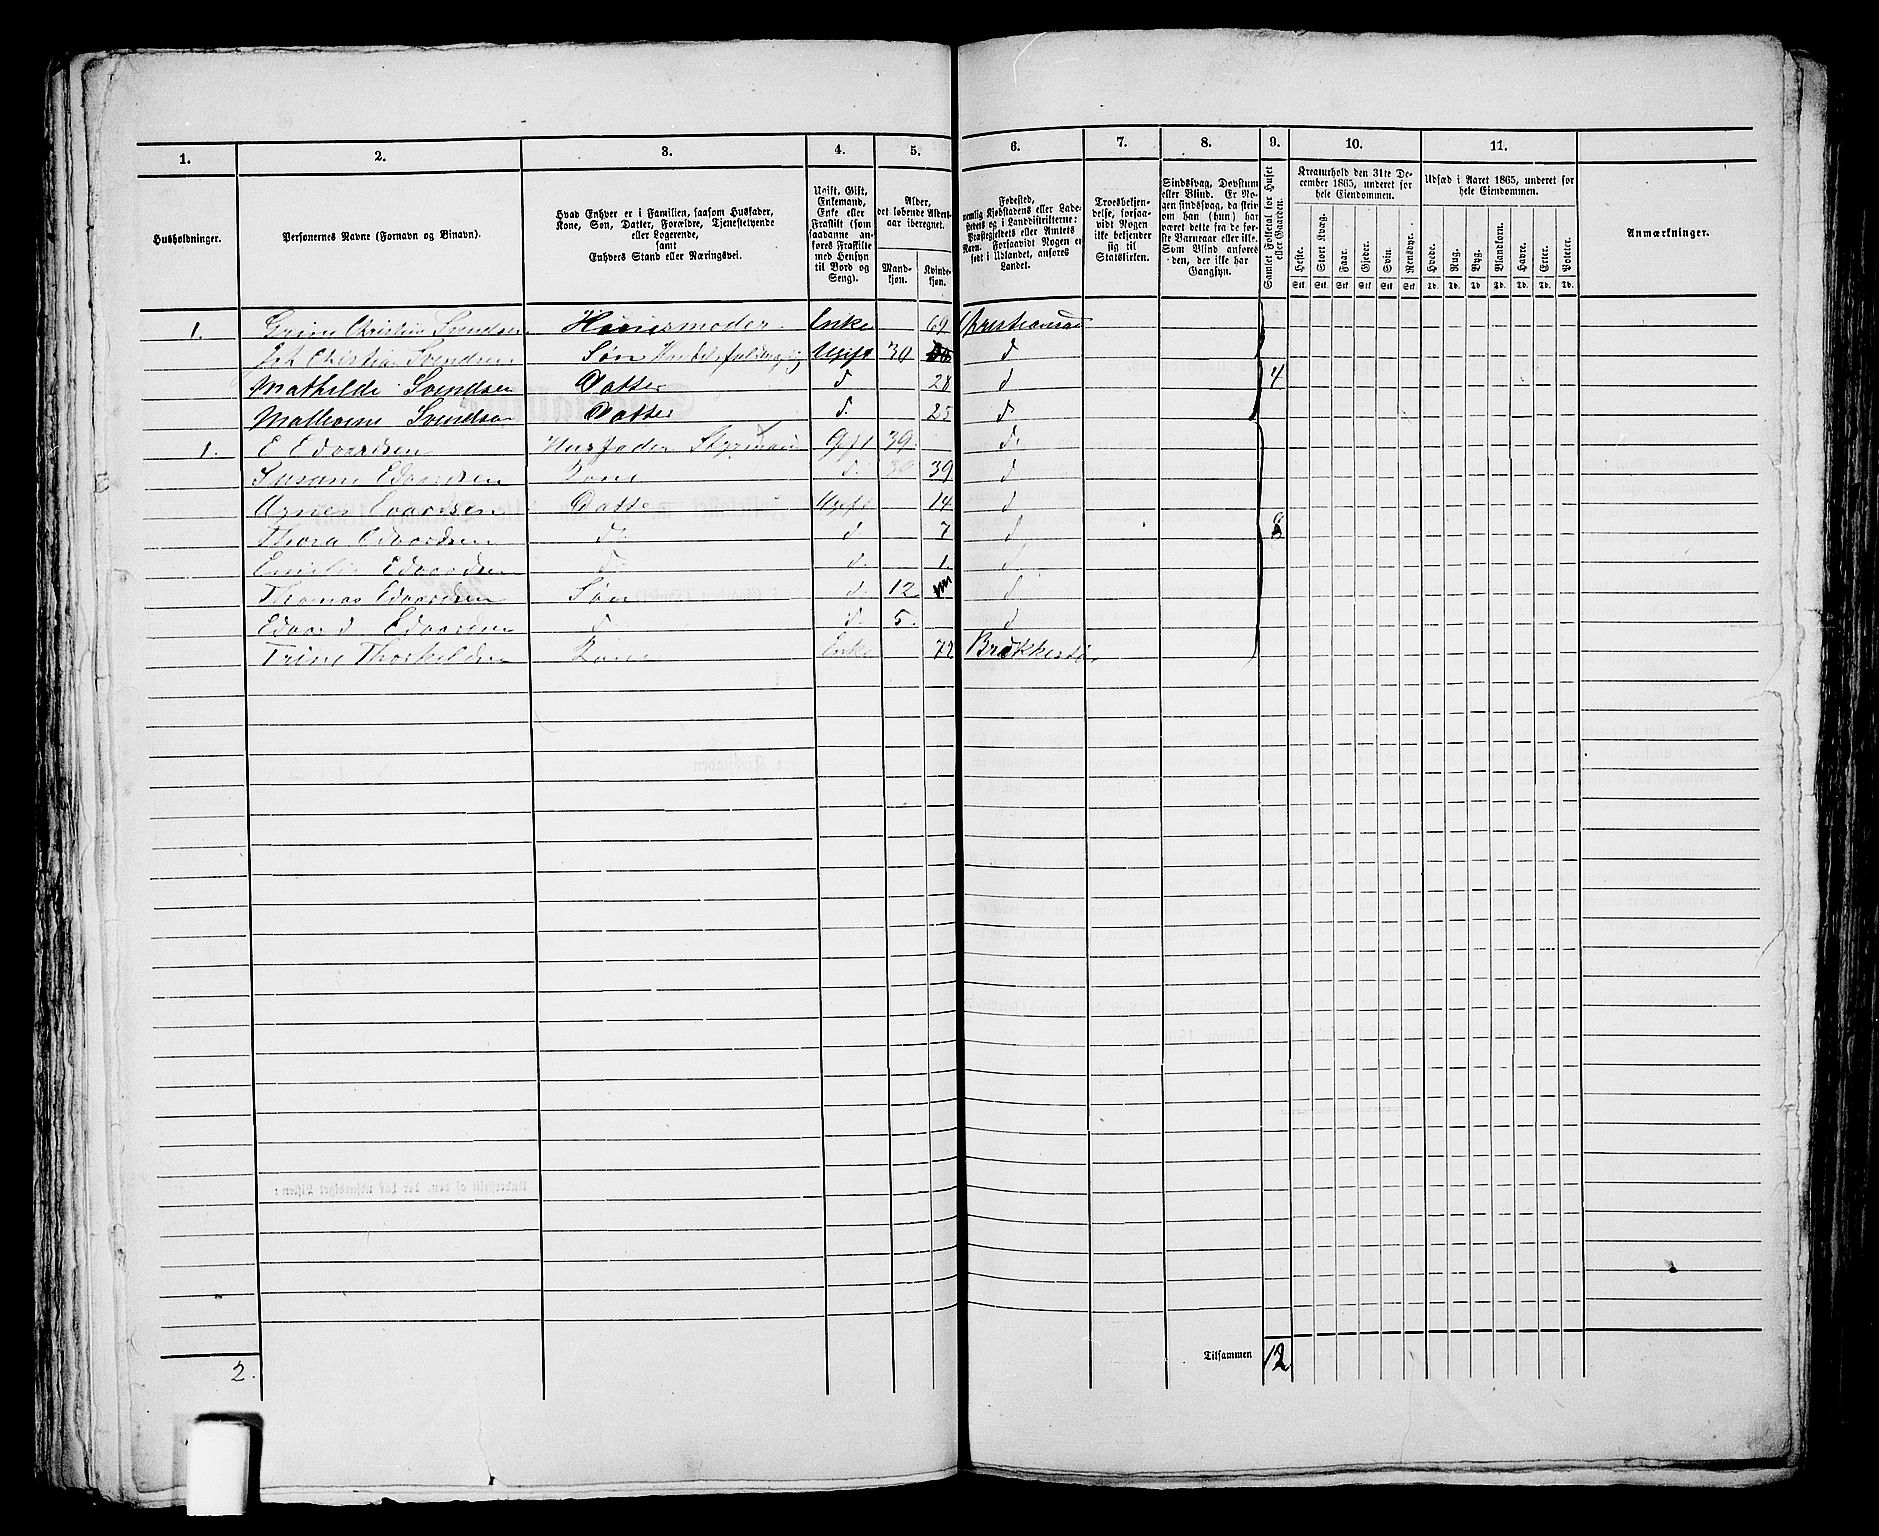 1. 2. 3. 4. 5. 6. 7. 8. 9. 10. 11.
Husholdninger.
Personernes Navne (Fornavn og Binavn).
Hvad Enhver er i Familien, saasom Husfader, Kone, Søn, Datter, Forældre, Tjenestetyende eller Logerende, samt Enhvers Stand eller Næringsvei.
Ugift, Gift, Enkemand, Enke eller Fraskilt (som saadanne anføres Fraskilte med Hensyn til Bord og Seng).
Alder, det løbende Alders-aar iberegnet.
Mandkjøn. Kvindekjøn.
Fødested, nemlig Kjøbstadens eller Ladestedets og i Landdistrikterne: Præstegjeldets eller Amtets Navn. Forsaavidt Nogen er født i Udlandet, anføres Landet.
Troesbekjendelse, forsaavidt Nogen ikke bekjender sig til Statskirken.
Sindssvag, Døvstum eller Blind. Er Nogen sindssvag, da skriv om han (hun) har været dette fra de første Barneaar eller ikke. Som Blind anføres den, der ikke har Gangsyn.
Samlet Folketal for Huset eller Gaarden.
Kreaturhold den 31te December 1865, underet for hele Eiendommen.
Udsæd i Aaret 1865, underet for hele Eiendommen.
Anmærkninger.
Heste. Stort Kvæg. Faar. Gjeder. Svin. Rensdyr. Hvede. Rug. Byg. Blandkorn. Havre. Erter. Poteter.
Stk. Stk. Stk. Stk. Stk. Stk. Td. Td. Td. Td. Td. Td. Td.
1. Christin Svendsen Huusmoder Enke 69 Christianssand
Joh Christian Svendsen Søn Ugift 30 d
Mathilde Svendsen Datter d 28 d 4
Svendsen Datter d. 25 d
1. E Edvardsen Husfader Styrmand Gift 39. d.
Susane Edvardsen Kone d. 39 d
Agnes Edvardsen Datter Ugift 14 d
Thora Edvardsen d. d 7 d 8
Emilie Edvardsen d. d. 1. d.
Thomas Edvardsen Søn d. 12 d
Edvard Edvardsen d. d. 5. d
Trine Thorkildsen Kone Enke 72
Tilsammen 12
2.